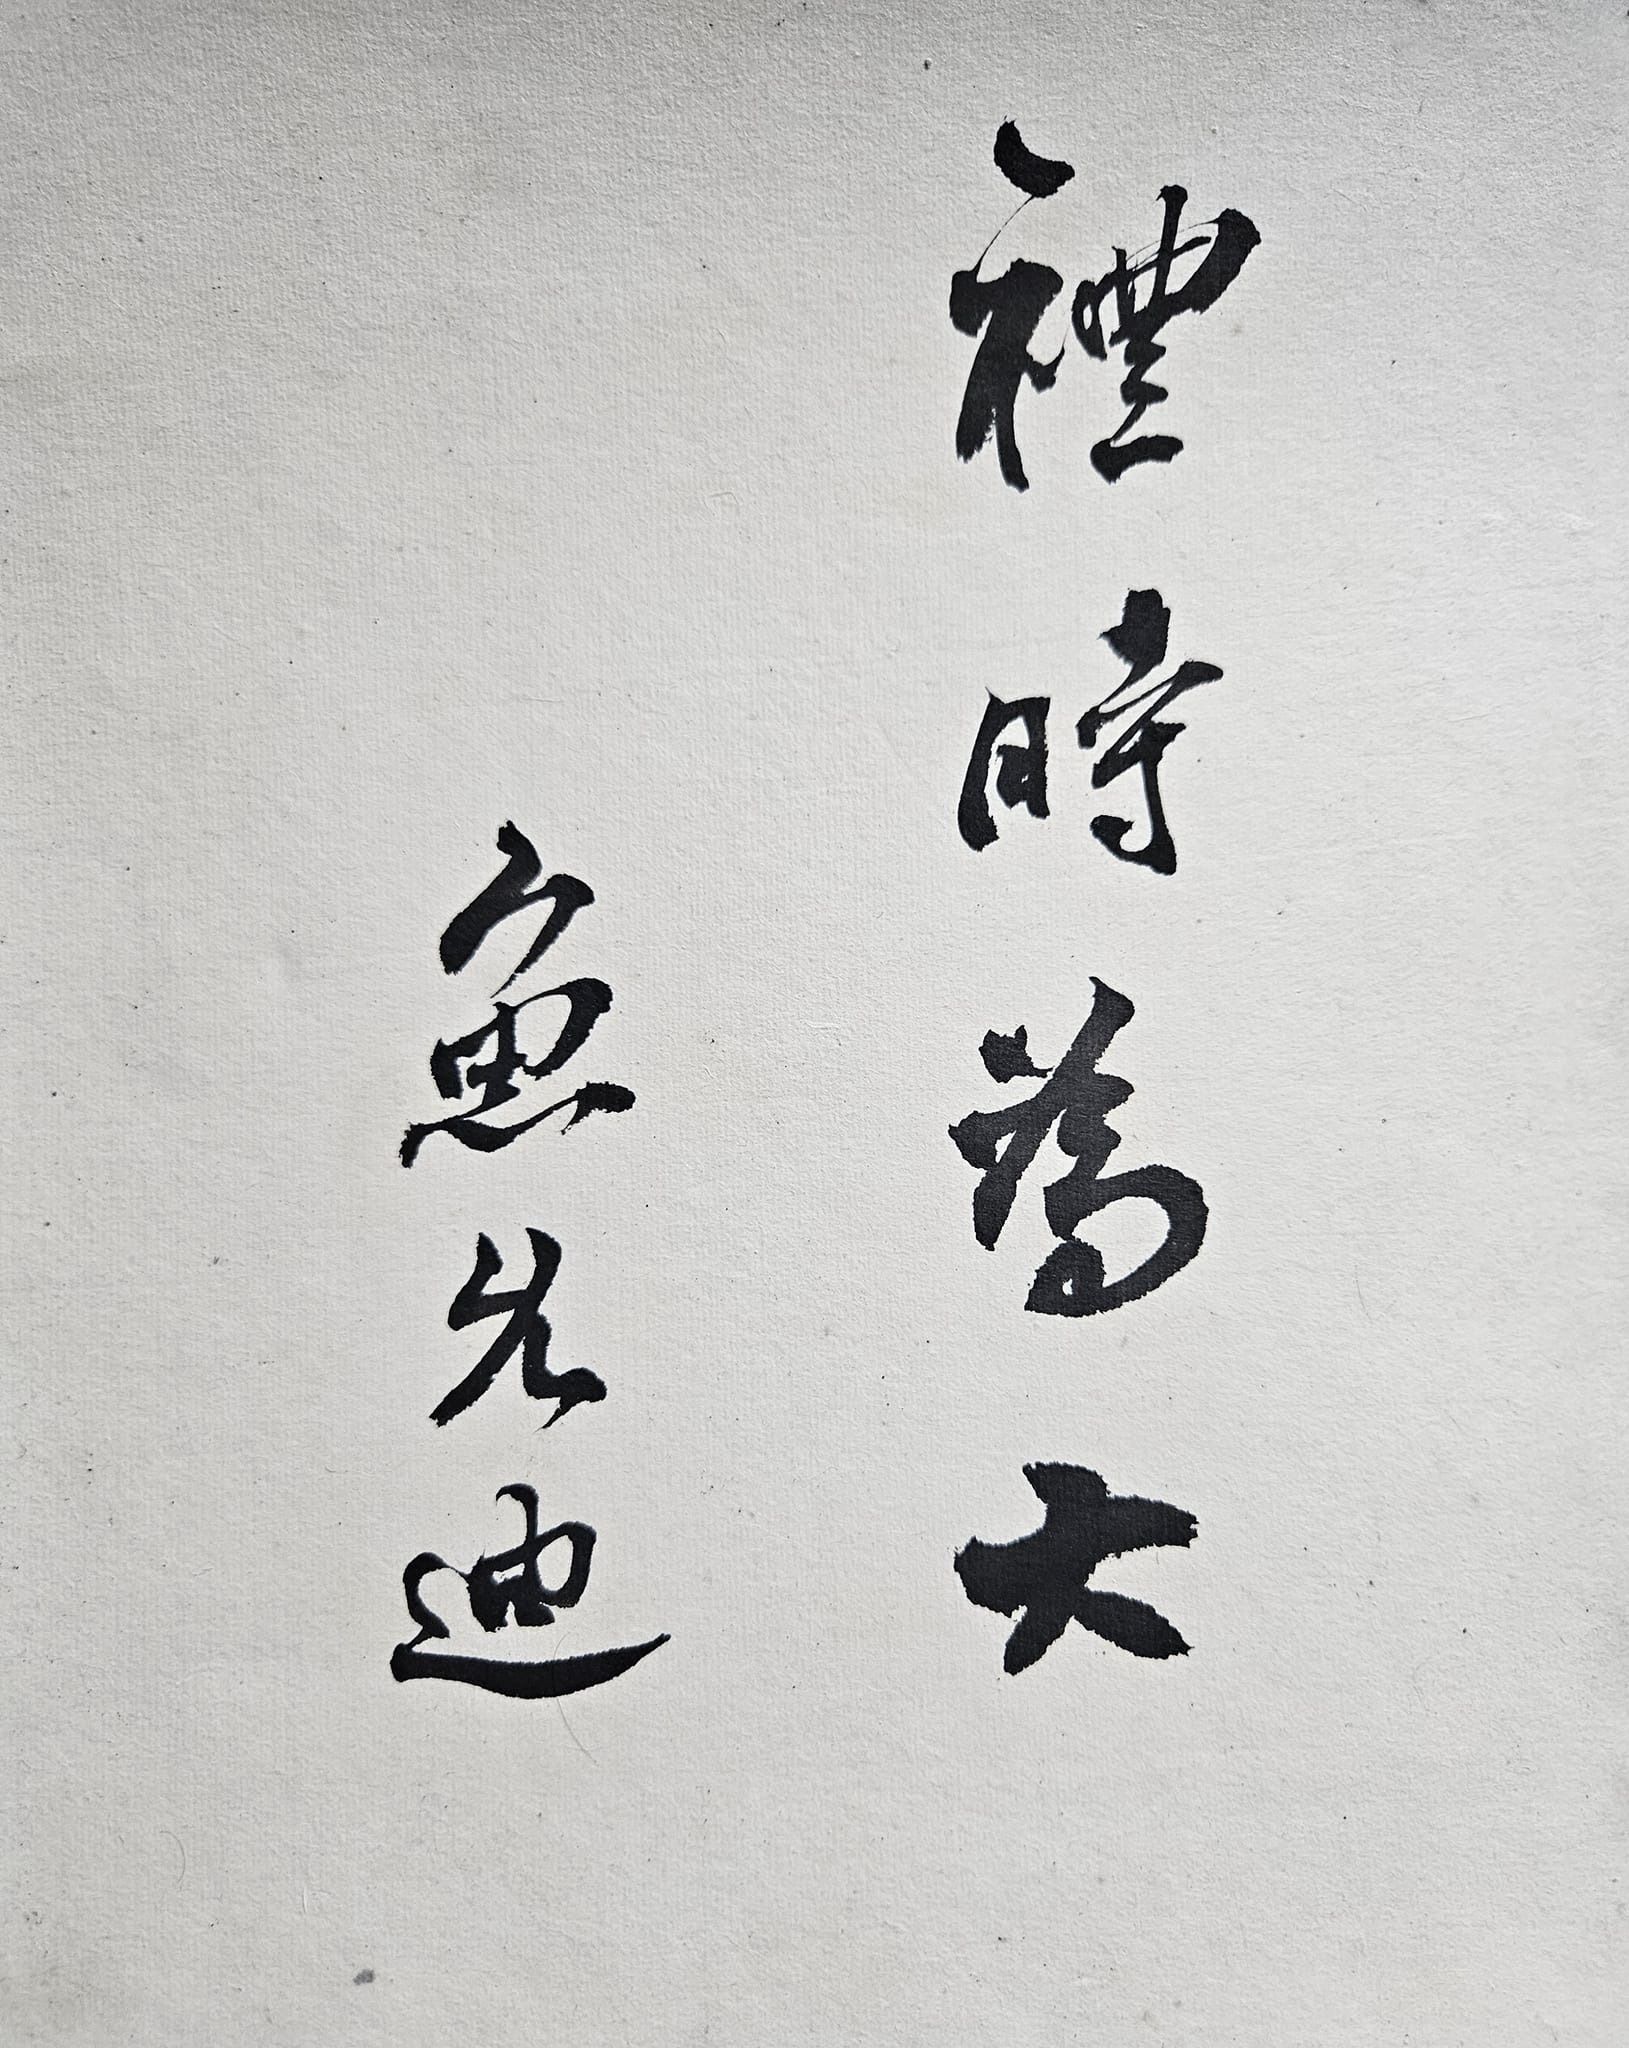 禮時為大
魚先迪